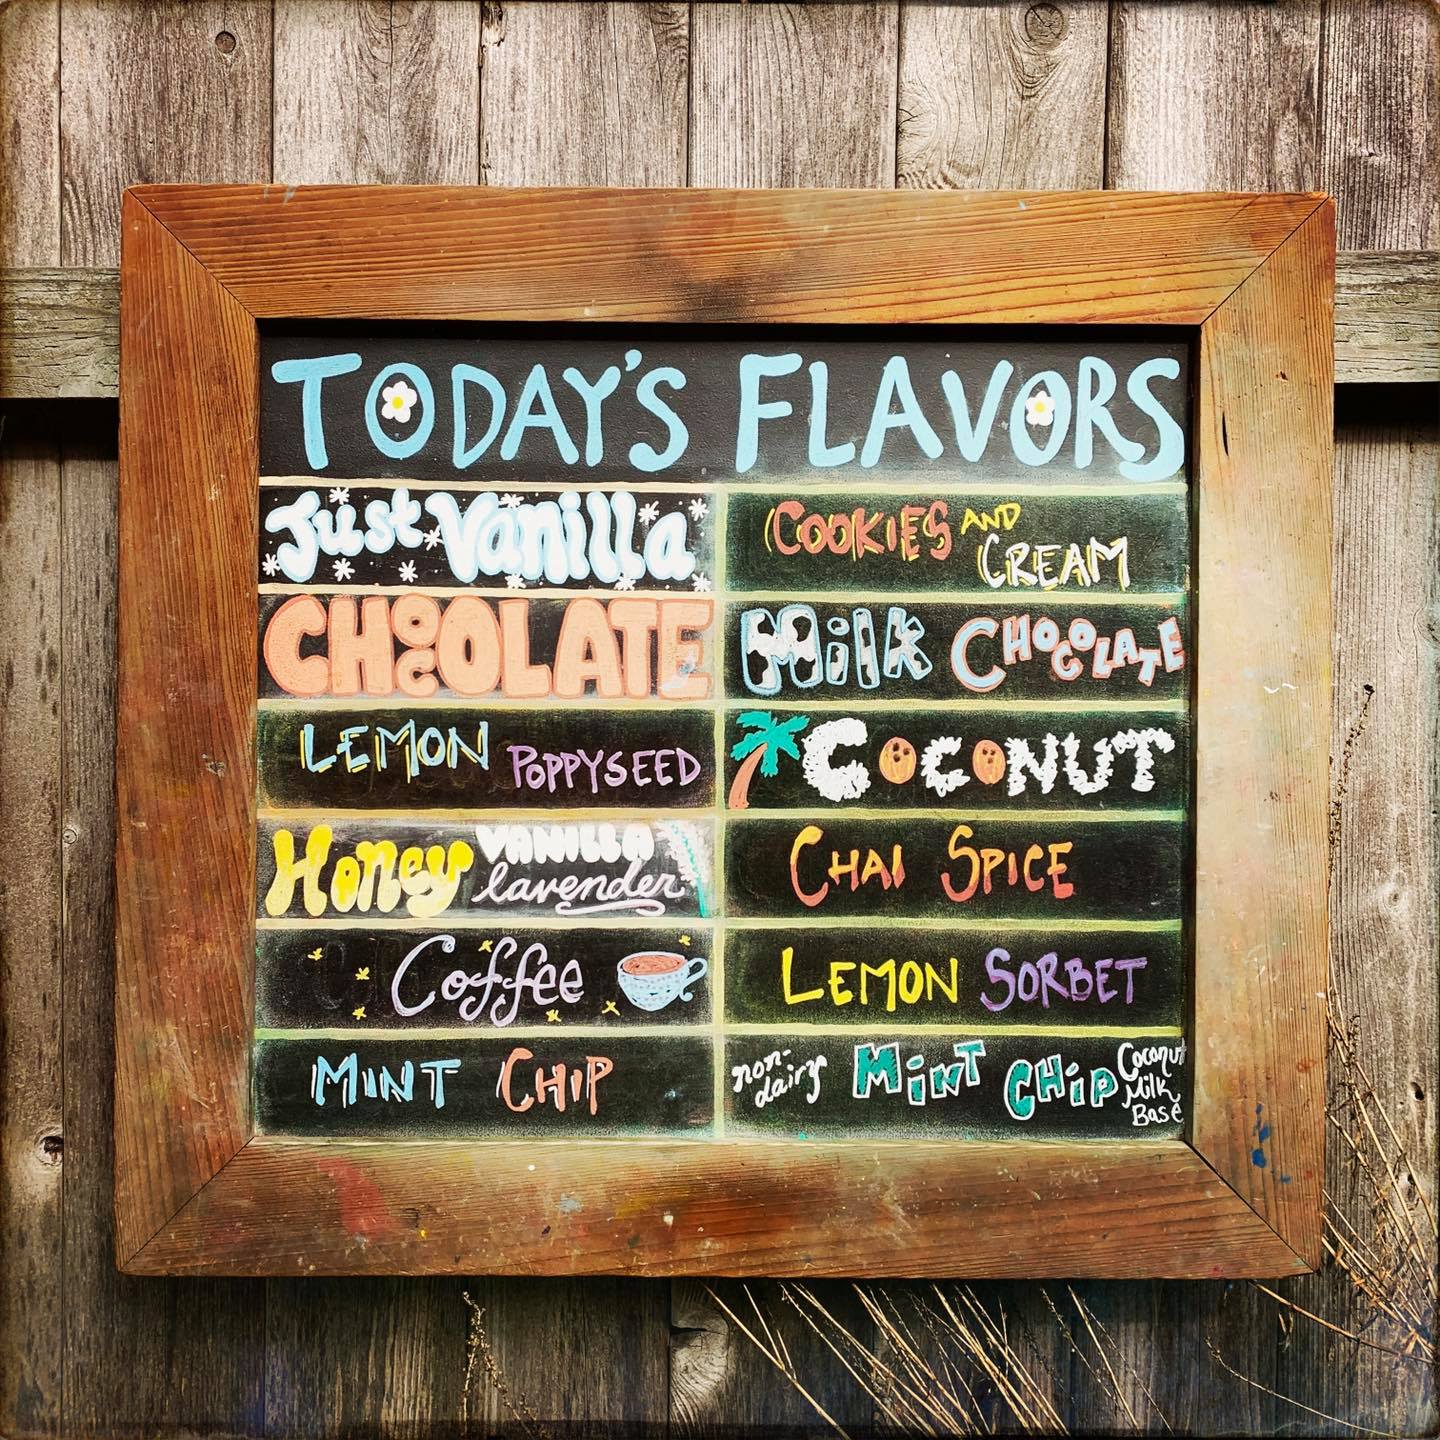 TODAY'S FLAVORS
Just Vanilla
CHOCOLATE
LEMON POPPYSEED
Honey VANILLA lavender
Coffee
MINT CHIP
COOKIES AND CREAM
Milk CHOCOLATE
COCONUT
CHAI SPICE
LEMON SORBET
non-dairy MiNT CHiP Coconut Milk Base